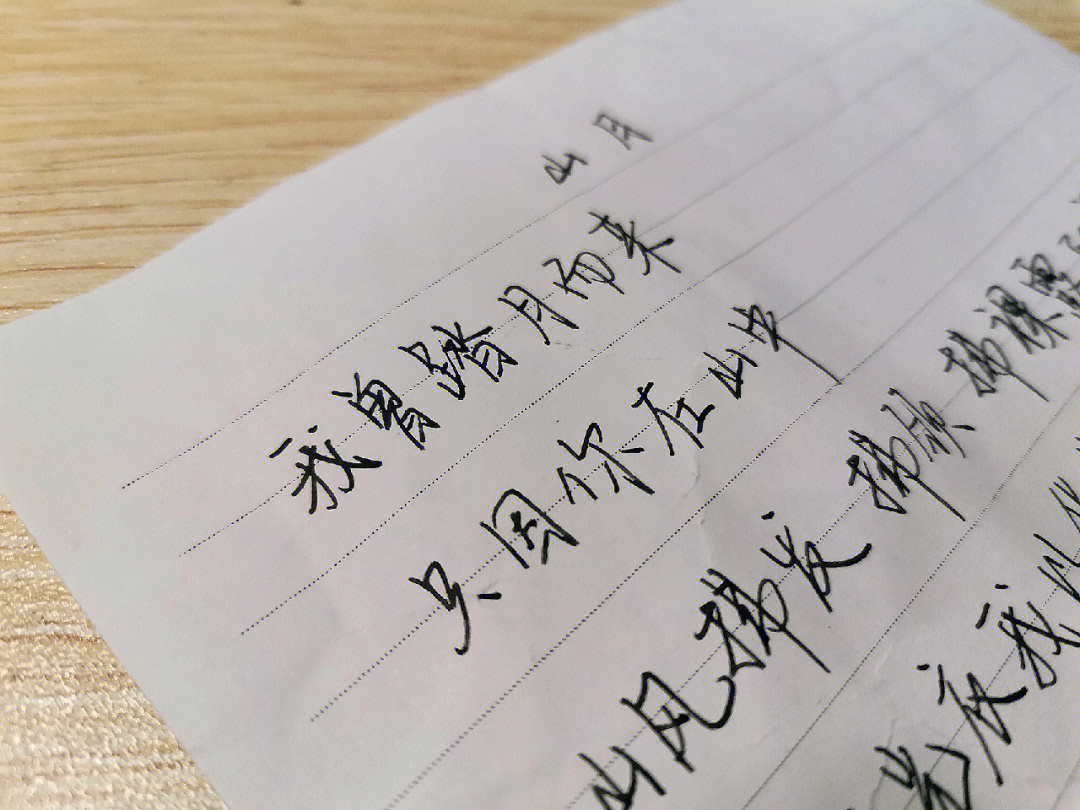 山月
我曾踏月而来
只因你在山中
山风拂发 拂颈 拂裸露
我以